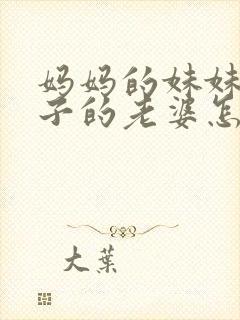 妈妈的妹妹
子的老婆怎
大叶